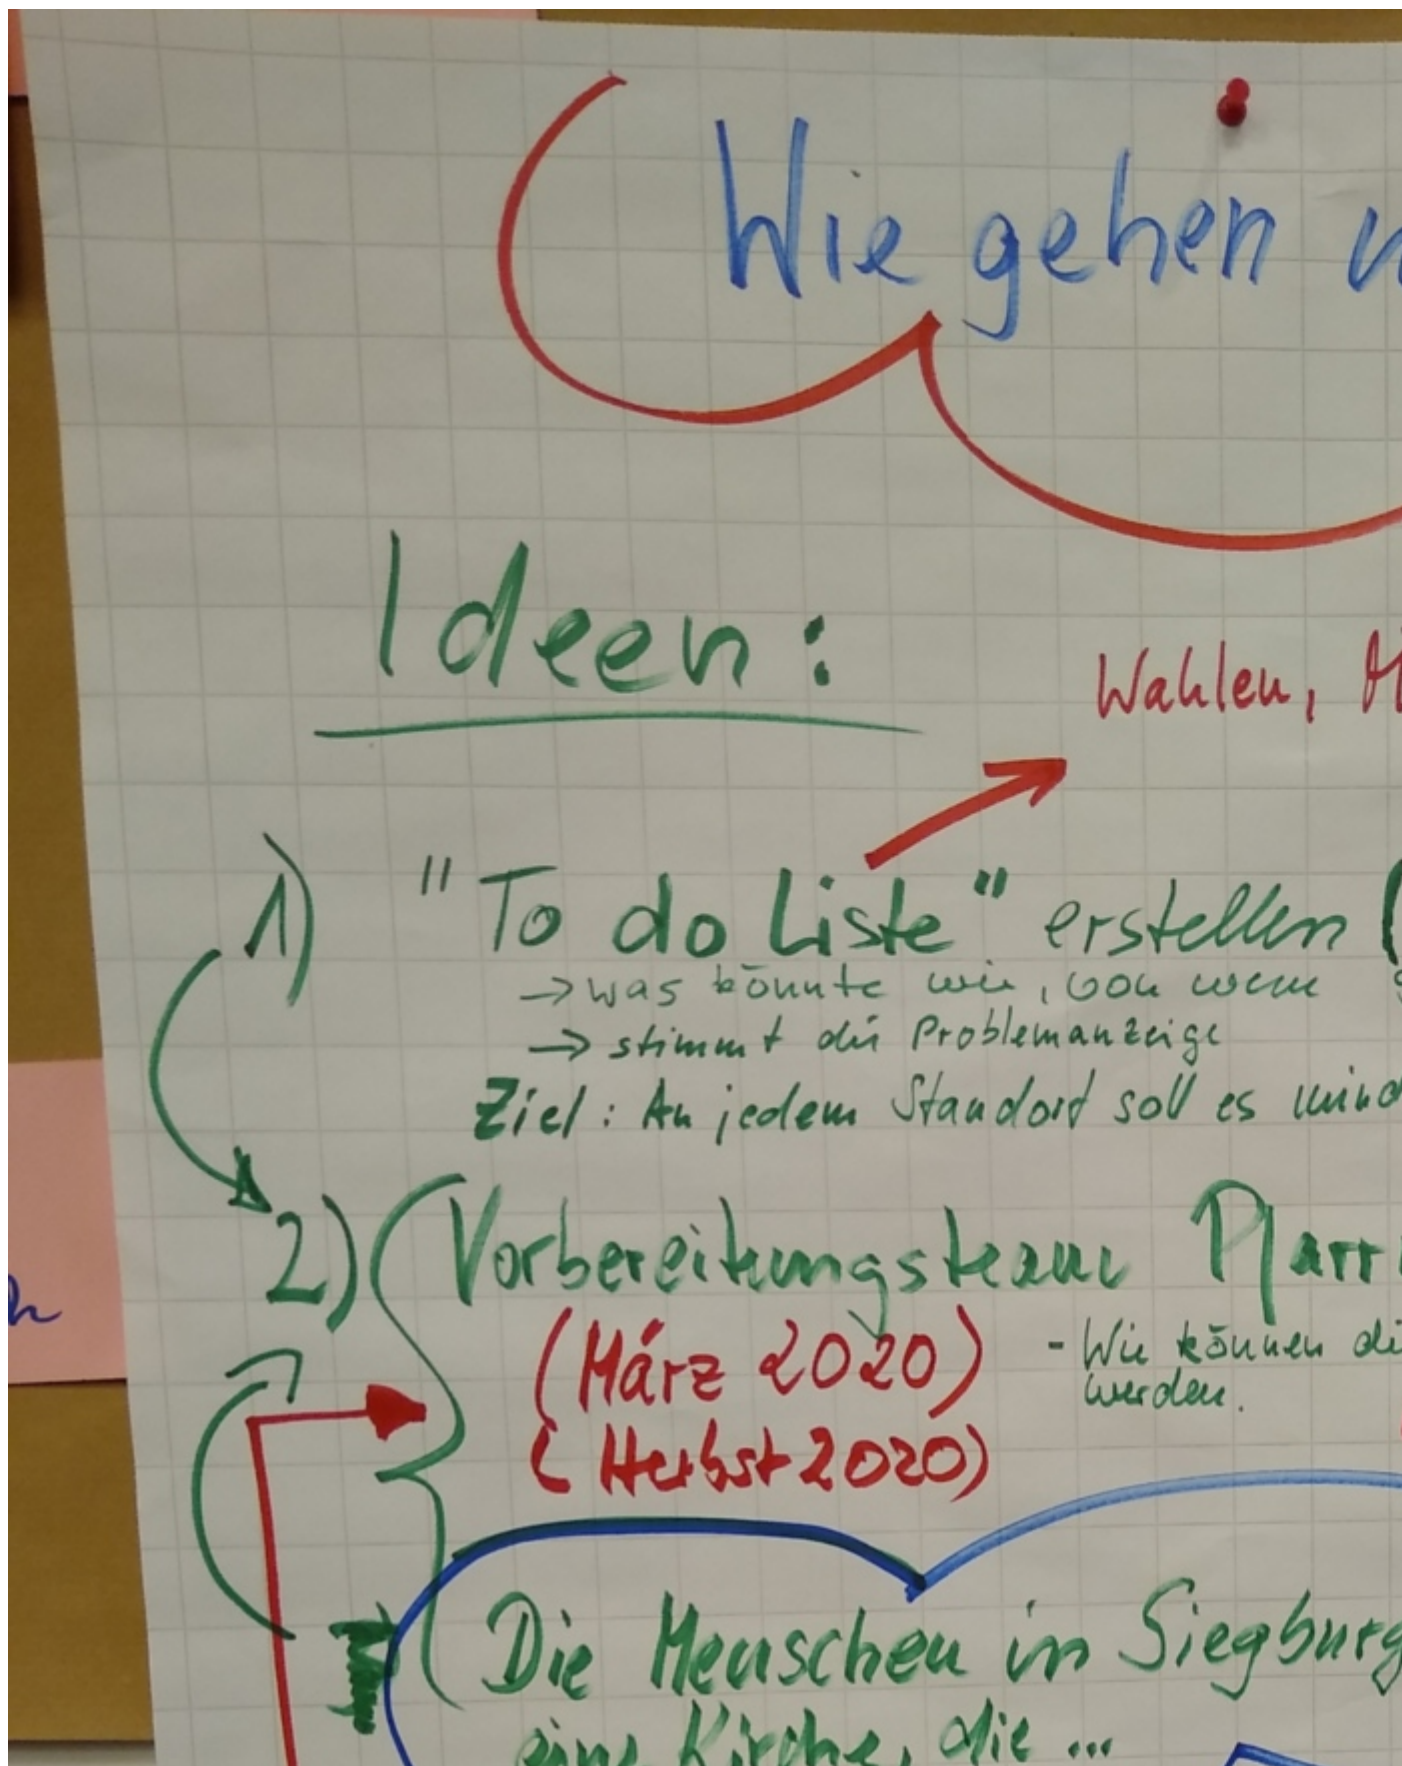 Wie gehen
Ideen:
Wahlen,
1) "To do Liste" erstellen (
→ was könnte wie, von wem
→ stimmt die Problemanzeige
Ziel: An jedem Standort soll es mind
2) Vorbereitungsteam Pfarr
(März 2020)
- Wie können di
werden.
(Herbst 2020)
Die Menschen in Siegburg
eine Kirche, die ...